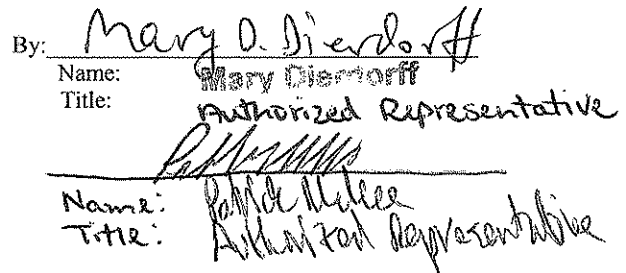 By: Mary D. Dierdorff
Name: Mary Dierdorff
Title: Authorized Representative
Name:
Title: Authorized Representative